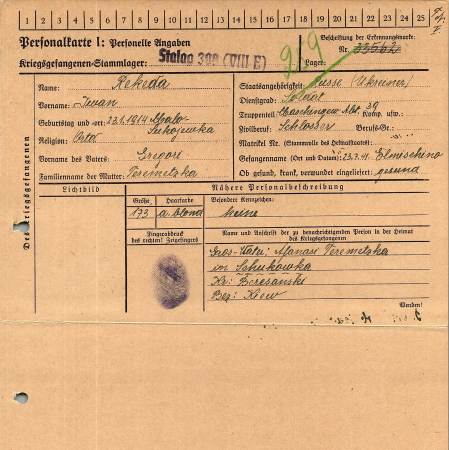 1 2 3 4 5 6 7 8 9 10 11 12 13 14 15 16 17 18 19 20 21 22 23 24 25
Personalkarte I: Personelle Angaben
Kriegsgefangenen-Stammlager: Stalag 308 (VIII E)
Beschriftung der Erkennungsmarke
Nr. 33562
Lager:
Des Kriegsgefangenen
Name: Rekeda
Vorname: Iwan
Geburtstag und -ort: 23.1.1914 Malo-
Sukojewka
Religion: Ortod
Vorname des Vaters: Gregori
Familienname der Mutter: Teremetzka
Staatsangehörigkeit: Russe (Ukreiner)
Dienstgrad: Soldat
Truppenteil: Maschingew Abt. 39 Komp. usw.:
Zivilberuf: Schlosser Berufs-Gr.:
Matrikel Nr. (Stammrolle des Heimatstaates):
Gefangennahme (Ort und Datum): 23.7.41
Ob gesund, krank, verwundet eingeliefert: gesund
Lichtbild
Nähere Personalbeschreibung
Größe Haarfarbe Besondere Kennzeichen:
173 d. blond keine
Fingerabdruck
des rechten! Zeigefingers
Name und Anschrift der zu benachrichtigenden Person in der Heimat
des Kriegsgefangenen
Gros-Vater: Afanasi Teremetzka
in Schukowka
Kr: Beresanski
Bez: Kiew
Wenden!